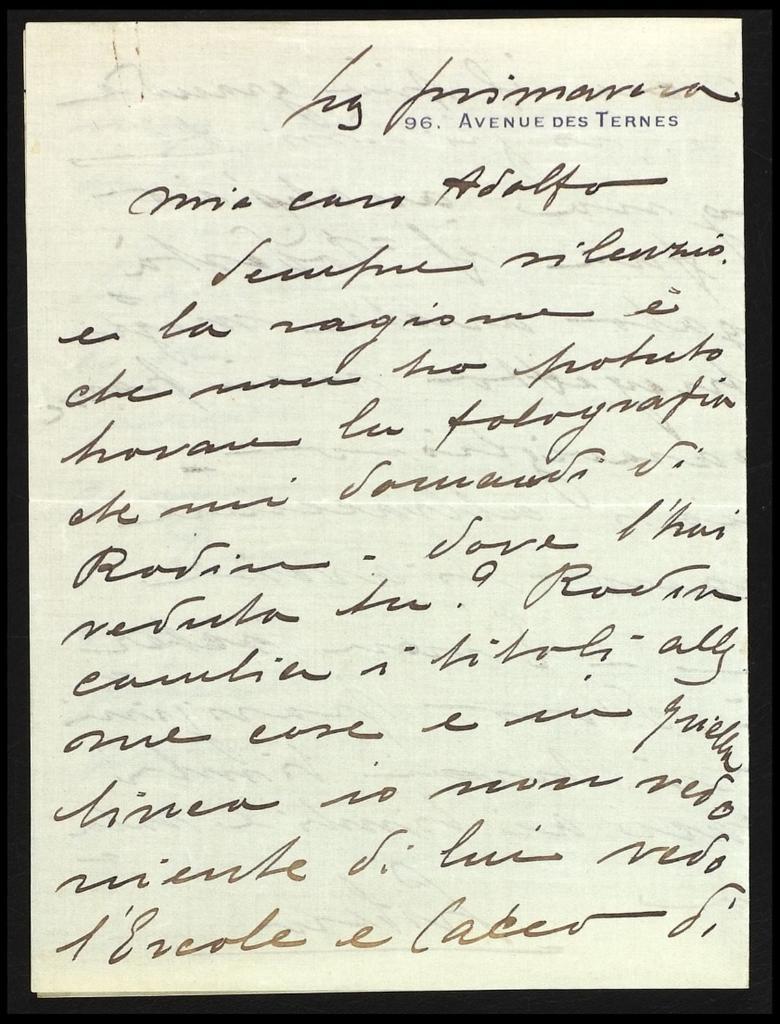 primavera
96. AVENUE DES TERNES
mio caro Adolfo
Sempre silenzio.
e la ragione è
che non ho potuto
trovare la fotografia
che mi domandi di
Rodin - dove l'hai
veduta tu? Rodin
cambia i titoli alle
sue cose e in quella
linea io non vedo
niente di lui vedo
l'Ercole e Cacco di